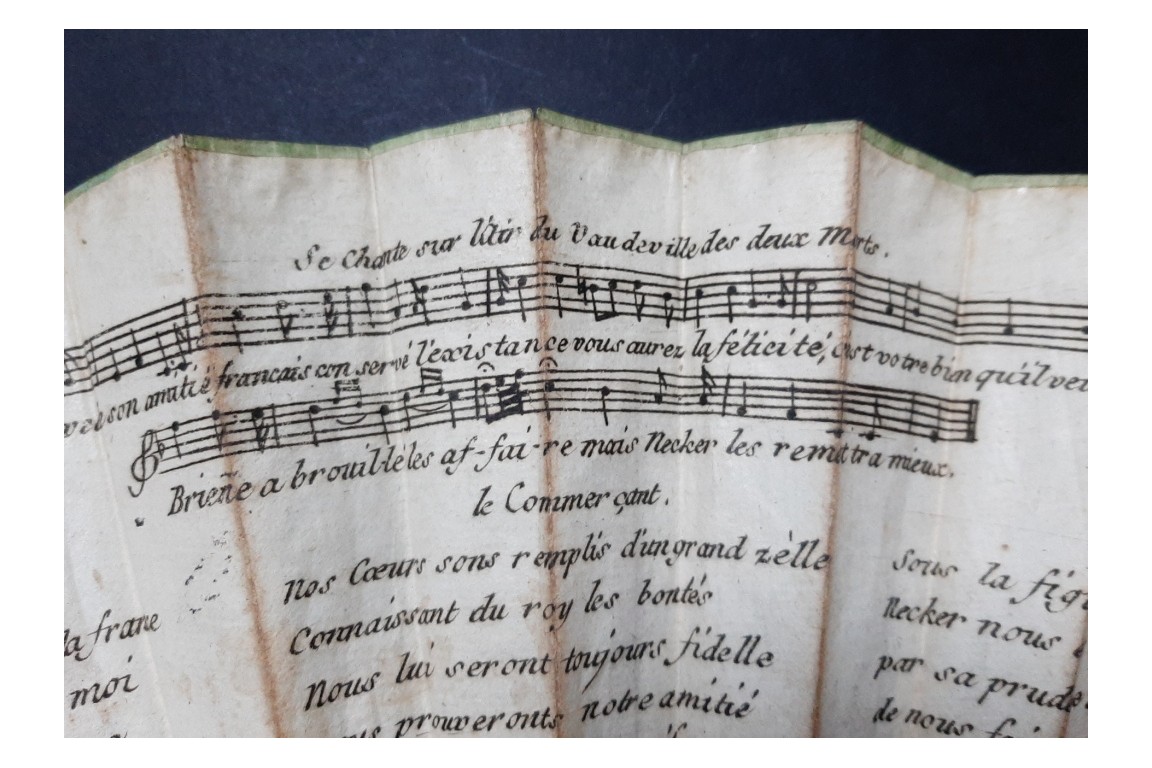 Se chante sur l'Air du Vaudeville des deux Morts.
son amitié francais conservé l'existance vous aurez la félicité, c'est votre bien qu'il veu
Brieñe a brouil-lé les af-fai-re mais Necker les remettra mieux.
le Commerçant.
Nos Cœurs sons remplis d'un grand zèlle
Connaissant du roy les bontés
Nous lui seront toujours fidelle
prouveronts notre amitié
la frane
moi
Sous la figu
Necker nous
par sa prude
de nous fai